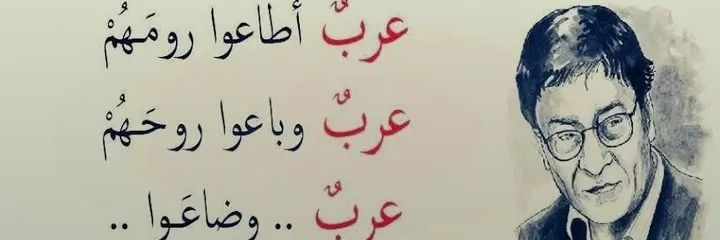 عربٌ أطاعوا رومَهُمْ
عربٌ وباعوا روحَهُمْ
عربٌ .. وضاعَوا ..